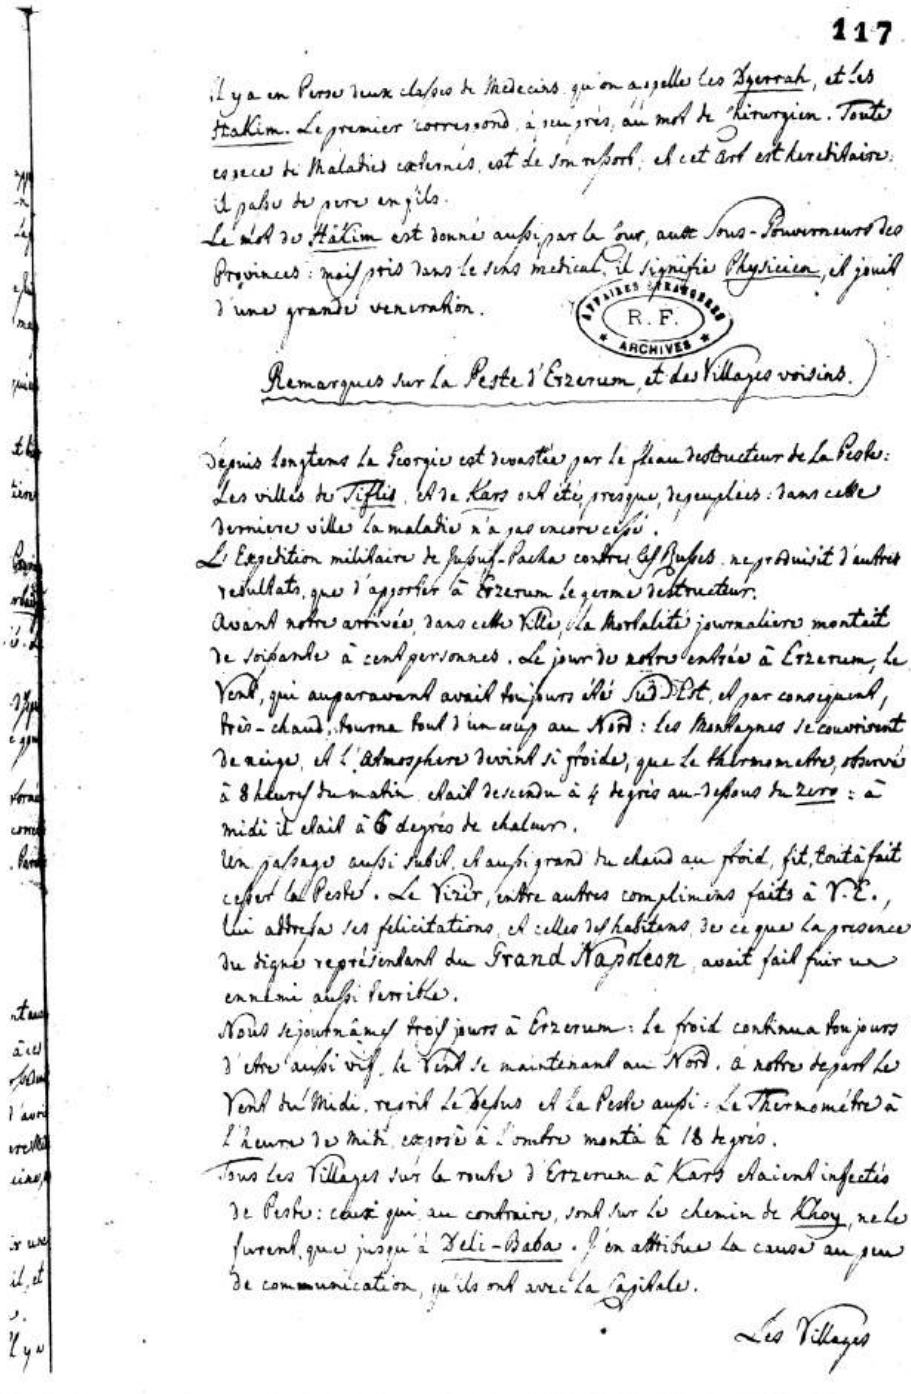 117
il y a en Perse deux classes de Medecins qu'on appelle les Dgerrah, et les
Hakim. Le premier correspond, à peu près, au mot de Chirurgien. Toute
espece de Maladies externes, est de son ressort; et cet art est hereditaire:
il passe de pere en fils.
Le mot de Hakim est donné aussi, par la Cour, aux Sous-Gouverneurs des
Provinces: mais pris dans le sens medical, il signifie Physicien, et jouit
d'une grande veneration.
AFFAIRES ETRANGERES
R.F.
ARCHIVES
Remarques sur la Peste d'Erzerum, et des Villages voisins.
Depuis longtems la Georgie est devastée par le fleau destructeur de la Peste:
Les villes de Tiflis, et de Kars ont été, presque, depeuplées: dans cette
derniere ville la maladie n'a pas encore cessé.
L'Expedition militaire de Jussuf-Pacha contre les Russes, ne produisit d'autres
resultats, que d'apporter à Erzerum le germe destructeur.
Avant notre arrivée, dans cette Ville, la Mortalité journaliere montait
de soixante à cent personnes. Le jour de notre entrée à Erzerum, le
Vent, qui auparavant avait toujours été Sud-Est, et par consequent,
très-chaud, tourna tout d'un coup au Nord: les Montagnes se couvrirent
de neige, et l'Atmosphere devint si froide, que le thermometre, observé
à 8 heures du matin, etait descendu à 4 degrés au-dessous du zero: à
midi il etait à 6 degrés de chaleur.
Un passage aussi subit, et aussi grand du chaud au froid, fit, tout à fait
cesser la Peste. Le Vizir, entre autres complimens faits à V.E.,
lui adressa ses felicitations, et celles des habitans, de ce que la presence
du digne représentant du Grand Napoleon, avait fait fuir un
ennemi aussi terrible.
Nous sejournâmes trois jours à Erzerum: le froid continua toujours
d'etre aussi vif, le Vent se maintenant au Nord. à notre depart le
Vent du Midi, reprit le Dessus et la Peste aussi: Le Thermométre à
l'heure de Midi, exposé à l'ombre monta à 18 degrés.
Tous les Villages sur la route d'Erzerum à Kars etaient infectés
de Peste: ceux qui, au contraire, sont sur le chemin de Khoy, ne le
furent, que jusqu'à Deli-Baba. J'en attribue la cause au peu
de communication, qu'ils ont avec la Capitale.
Les Villages